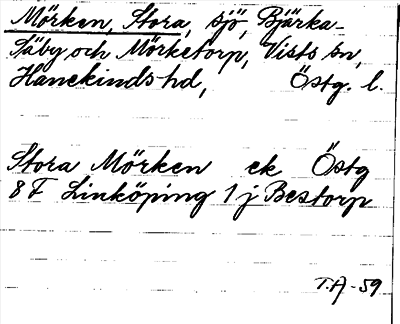 Mörken, Stora, sjö, Bjärka-
Säby och Mörketorp, Vists sn,
Hanekinds hd, Östg. l.
Stora Mörken ek Östg
8F Linköping 1j Bestorp
T.A -59